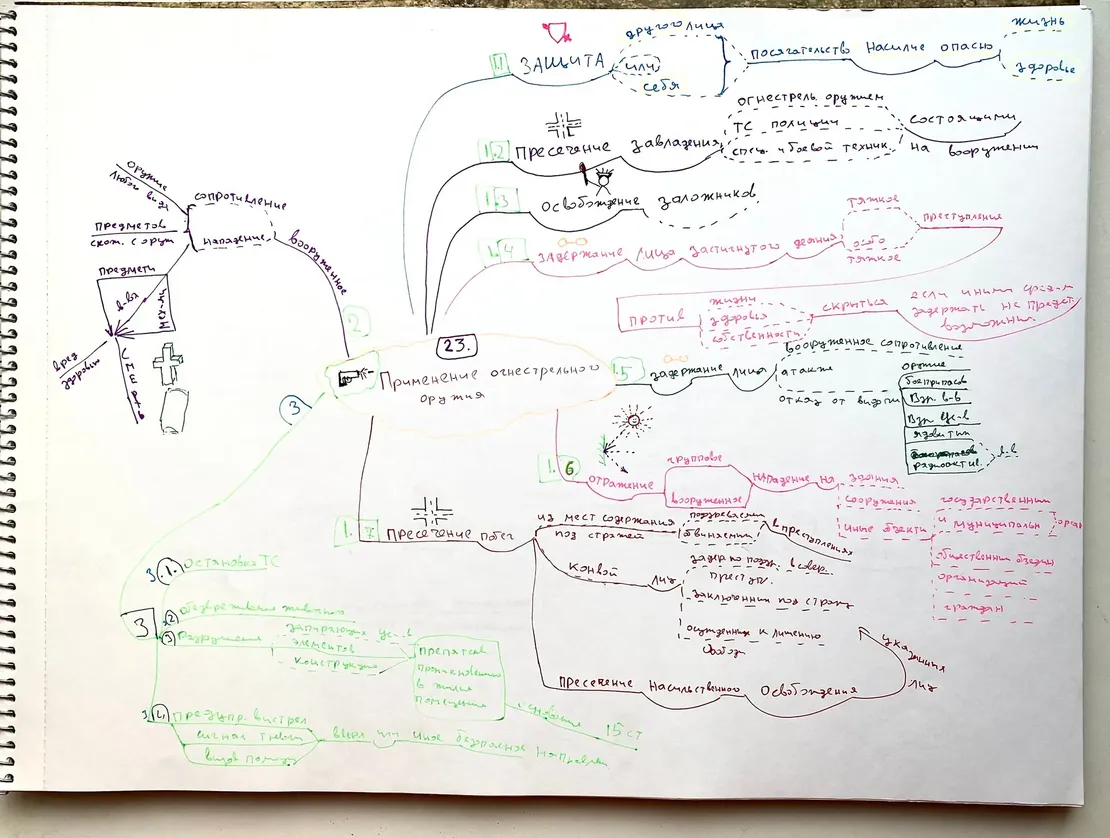 23.
Применение огнестрельного
оружия
1.1
ЗАЩИТА
другого лица
или
себя
посягательство насилие опасно
жизнь
здоровье
1.2
Пресечение завладения
огнестрель. оружием
ТС полиции
спец. и боевой техник.
состоящими
на вооружении
1.3
Освобождение заложников
1.4
задержание лица застигнутого деяния
тяжкое
особо
тяжкое
преступления
против
жизни
здоровья
собственности
скрыться
если иными
задержать не предст.
1.5
задержание лица
вооруженное сопротивление
атакже
отказ от выдачи
оружие
боеприпасов
Взр. в-в
Взр. ус-в
ядовитых
радиоактив.
в-в
1.6
отражение
групповое
вооруженное
нападение на
здания
сооружения
иные
государственных
и муниципальн
орган
организаций
граждан
1.7
Пресечение побег
из мест содержания
под стражей
обвиняемых
в преступлениях
Конвой лиц
преступ.
заключенных под стражу
осужденных к лишению
Пресечение насильственного освобождения
указанных
лиц
2
вооруженное
сопротивление
нападение
оружие
любого вида
предметов
схож. с оруж
предметы
в-ва
мех-мы
смерть
вред
здоровью
3
3
3.1.
Остановка ТС
2
обезвреживание животного
3
Разрушение
запирающих ус-в
элементов
конструкций
препятств
проникновению
в жилые
помещения
15 ст
3.4
Предупр. выстрел
сигнал тревоги
вызов помощи
вверх или иное безопасное направлен